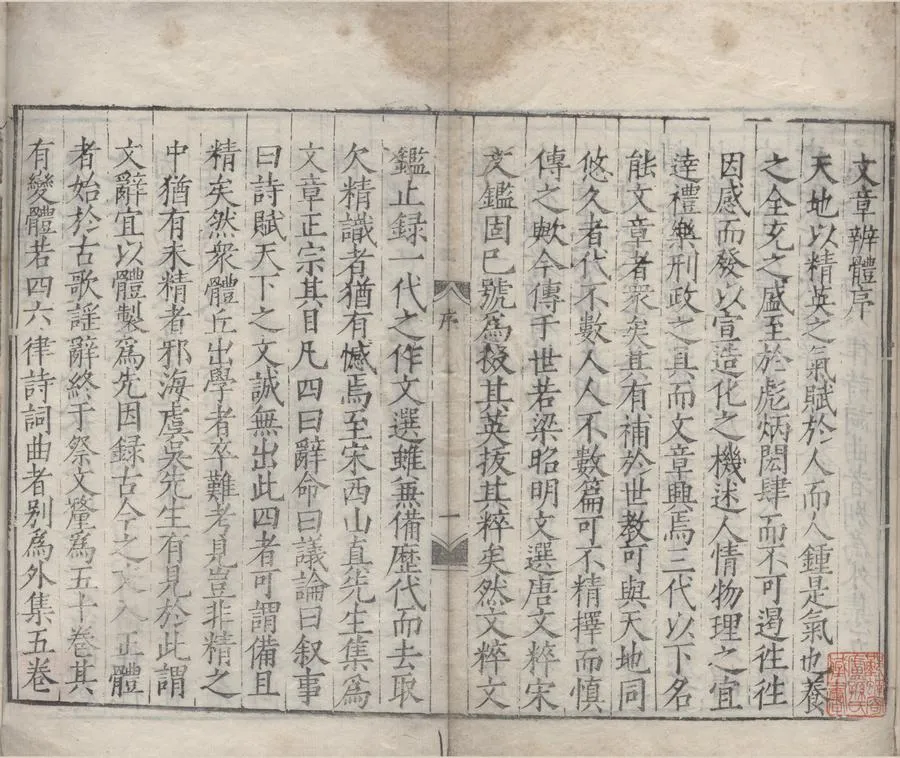 文章辨體序
天地以精英之氣賦於人而人鍾是氣也養
之全充之盛至於彪炳閎肆而不可遏往往
因感而發以宣造化之機述人情物理之宜
達禮樂刑政之具而文章興焉三代以下名
能文章者衆矣其有補於世教可與天地同
悠久者代不數人人不數篇可不精擇而慎
傳之歟今傳于世若梁昭明文選唐文粹宋
文鑑固已號為掇其英拔其粹矣然文粹文
序
一
鑑止録一代之作文選雖兼備歷代而去取
欠精識者猶有憾焉至宋西山真先生集為
文章正宗其目凡四曰辭命曰議論曰叙事
曰詩賦天下之文誠無出此四者可謂備且
精矣然衆體互出學者卒難考見豈非精之
中猶有未精者邪海虞吳先生有見於此謂
文辭宜以體製為先因録古今之文入正體
者始於古歌謡辭終于祭文釐為五十卷其
有變體若四六律詩詞曲者别為外集五卷